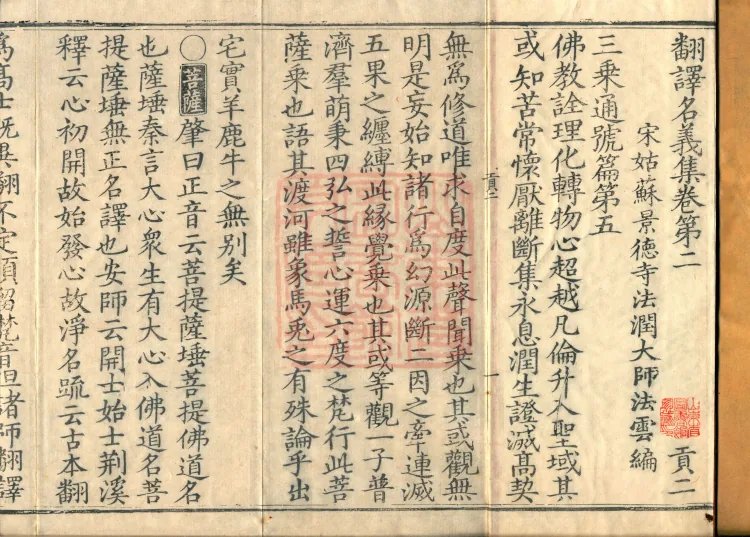 翻譯名義集卷第二 貢二
宋姑蘇景德寺法潤大師法雲編
三乘通號篇第五
佛教詮理化轉物心超越凡倫升入聖域其
或知苦常懷厭離斷集永息潤生證滅高契
無爲修道唯求自度此聲聞乘也其或觀無
明是妄始知諸行爲幻源斷二因之牽連滅
五果之纏縛此緣覺乘也其或等觀一子普
濟羣萌秉四弘之誓心運六度之梵行此菩
薩乘也語其渡河雖象馬兎之有殊論乎出
宅實羊鹿牛之無別矣
○菩薩肇曰正音云菩提薩埵菩提佛道名
也薩埵秦言大心衆生有大心入佛道名菩
提薩埵無正名譯也安師云開士始士荆溪
釋云心初開故始發心故淨名疏云古本翻
爲高士既異翻不定須留梵音但諸師翻譯
貢二
一